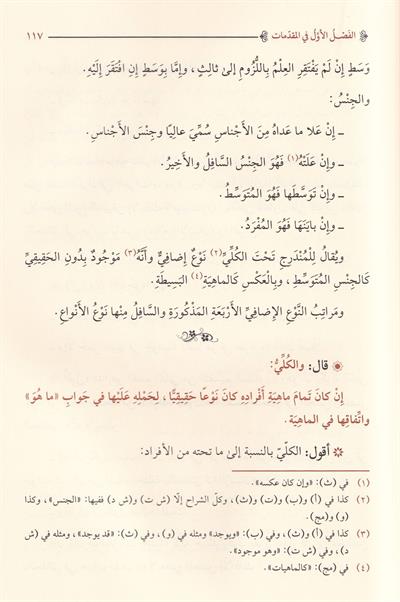 الفَصْلُ الأوّلُ في المقدّمات
١١٧
وَسَطٍ إِنْ لَمْ يَفْتَقِرِ العِلْمُ بِاللُّزُومِ إلىٰ ثالِثٍ، وإمّا بِوَسَطٍ إِنِ افْتَقَرَ إِلَيْهِ.
والجِنْسُ:
ـ إِنْ عَلا ما عَداهُ مِنَ الأجْناسِ سُمِّيَ عالِيًا وجِنْسَ الأجْناسِ.
ـ وإِنْ عَلَتْهُ(١) فَهُوَ الجِنْسُ السَّافِلُ والأَخِيرُ.
ـ وإِنْ تَوَسَّطَها فَهُوَ المُتَوَسِّطُ.
ـ وإِنْ بايَنَها فَهُوَ المُفْرَدُ.
ويُقالُ لِلْمُنْدَرِجِ تَحْتَ الكُلِّيِّ(٢) نَوْعٌ إِضافِيٌّ وأَنَّهُ(٣) مَوْجُودٌ بِدُونِ الحَقِيقِيِّ
كَالجِنْسِ المُتَوَسِّطِ، وبِالْعَكْسِ كَالماهِيَةِ(٤) البَسِيطَةِ.
ومَراتِبُ النَّوْعِ الإضافِيِّ الأَرْبَعَةِ المَذْكُورَةِ والسَّافِلُ مِنْها نَوْعُ الأَنْواعِ.
قال: والكُلِّيُّ:
إِنْ كانَ تَمامَ ماهِيَةِ أَفْرادِهِ كانَ نَوْعًا حَقِيقِيًّا، لِحَمْلِهِ عَلَيْها في جَوابِ «ما هُوَ»
واتِّفاقِها في الماهِيَة.
أقول: الكلّيّ بالنسبة إلىٰ ما تحته من الأفراد:
(١) في (ث): «وإن كان عكسه».
(٢) كذا في (أ) و(ب) و(ت) و(ث)، وكلّ الشراح إلّا (ش ت) و(ش د) ففيها: «الجنس»، وكذا
(و) و(مج).
(٣) كذا في (أ) و(ت)، وفي (ب): «ويوجد» ومثله في (و)، وفي (ث): «قد يوجد»، ومثله في (ش
د)، وفي (ش ت): «وهو موجود».
(٤) في (مج): «كالماهيات».